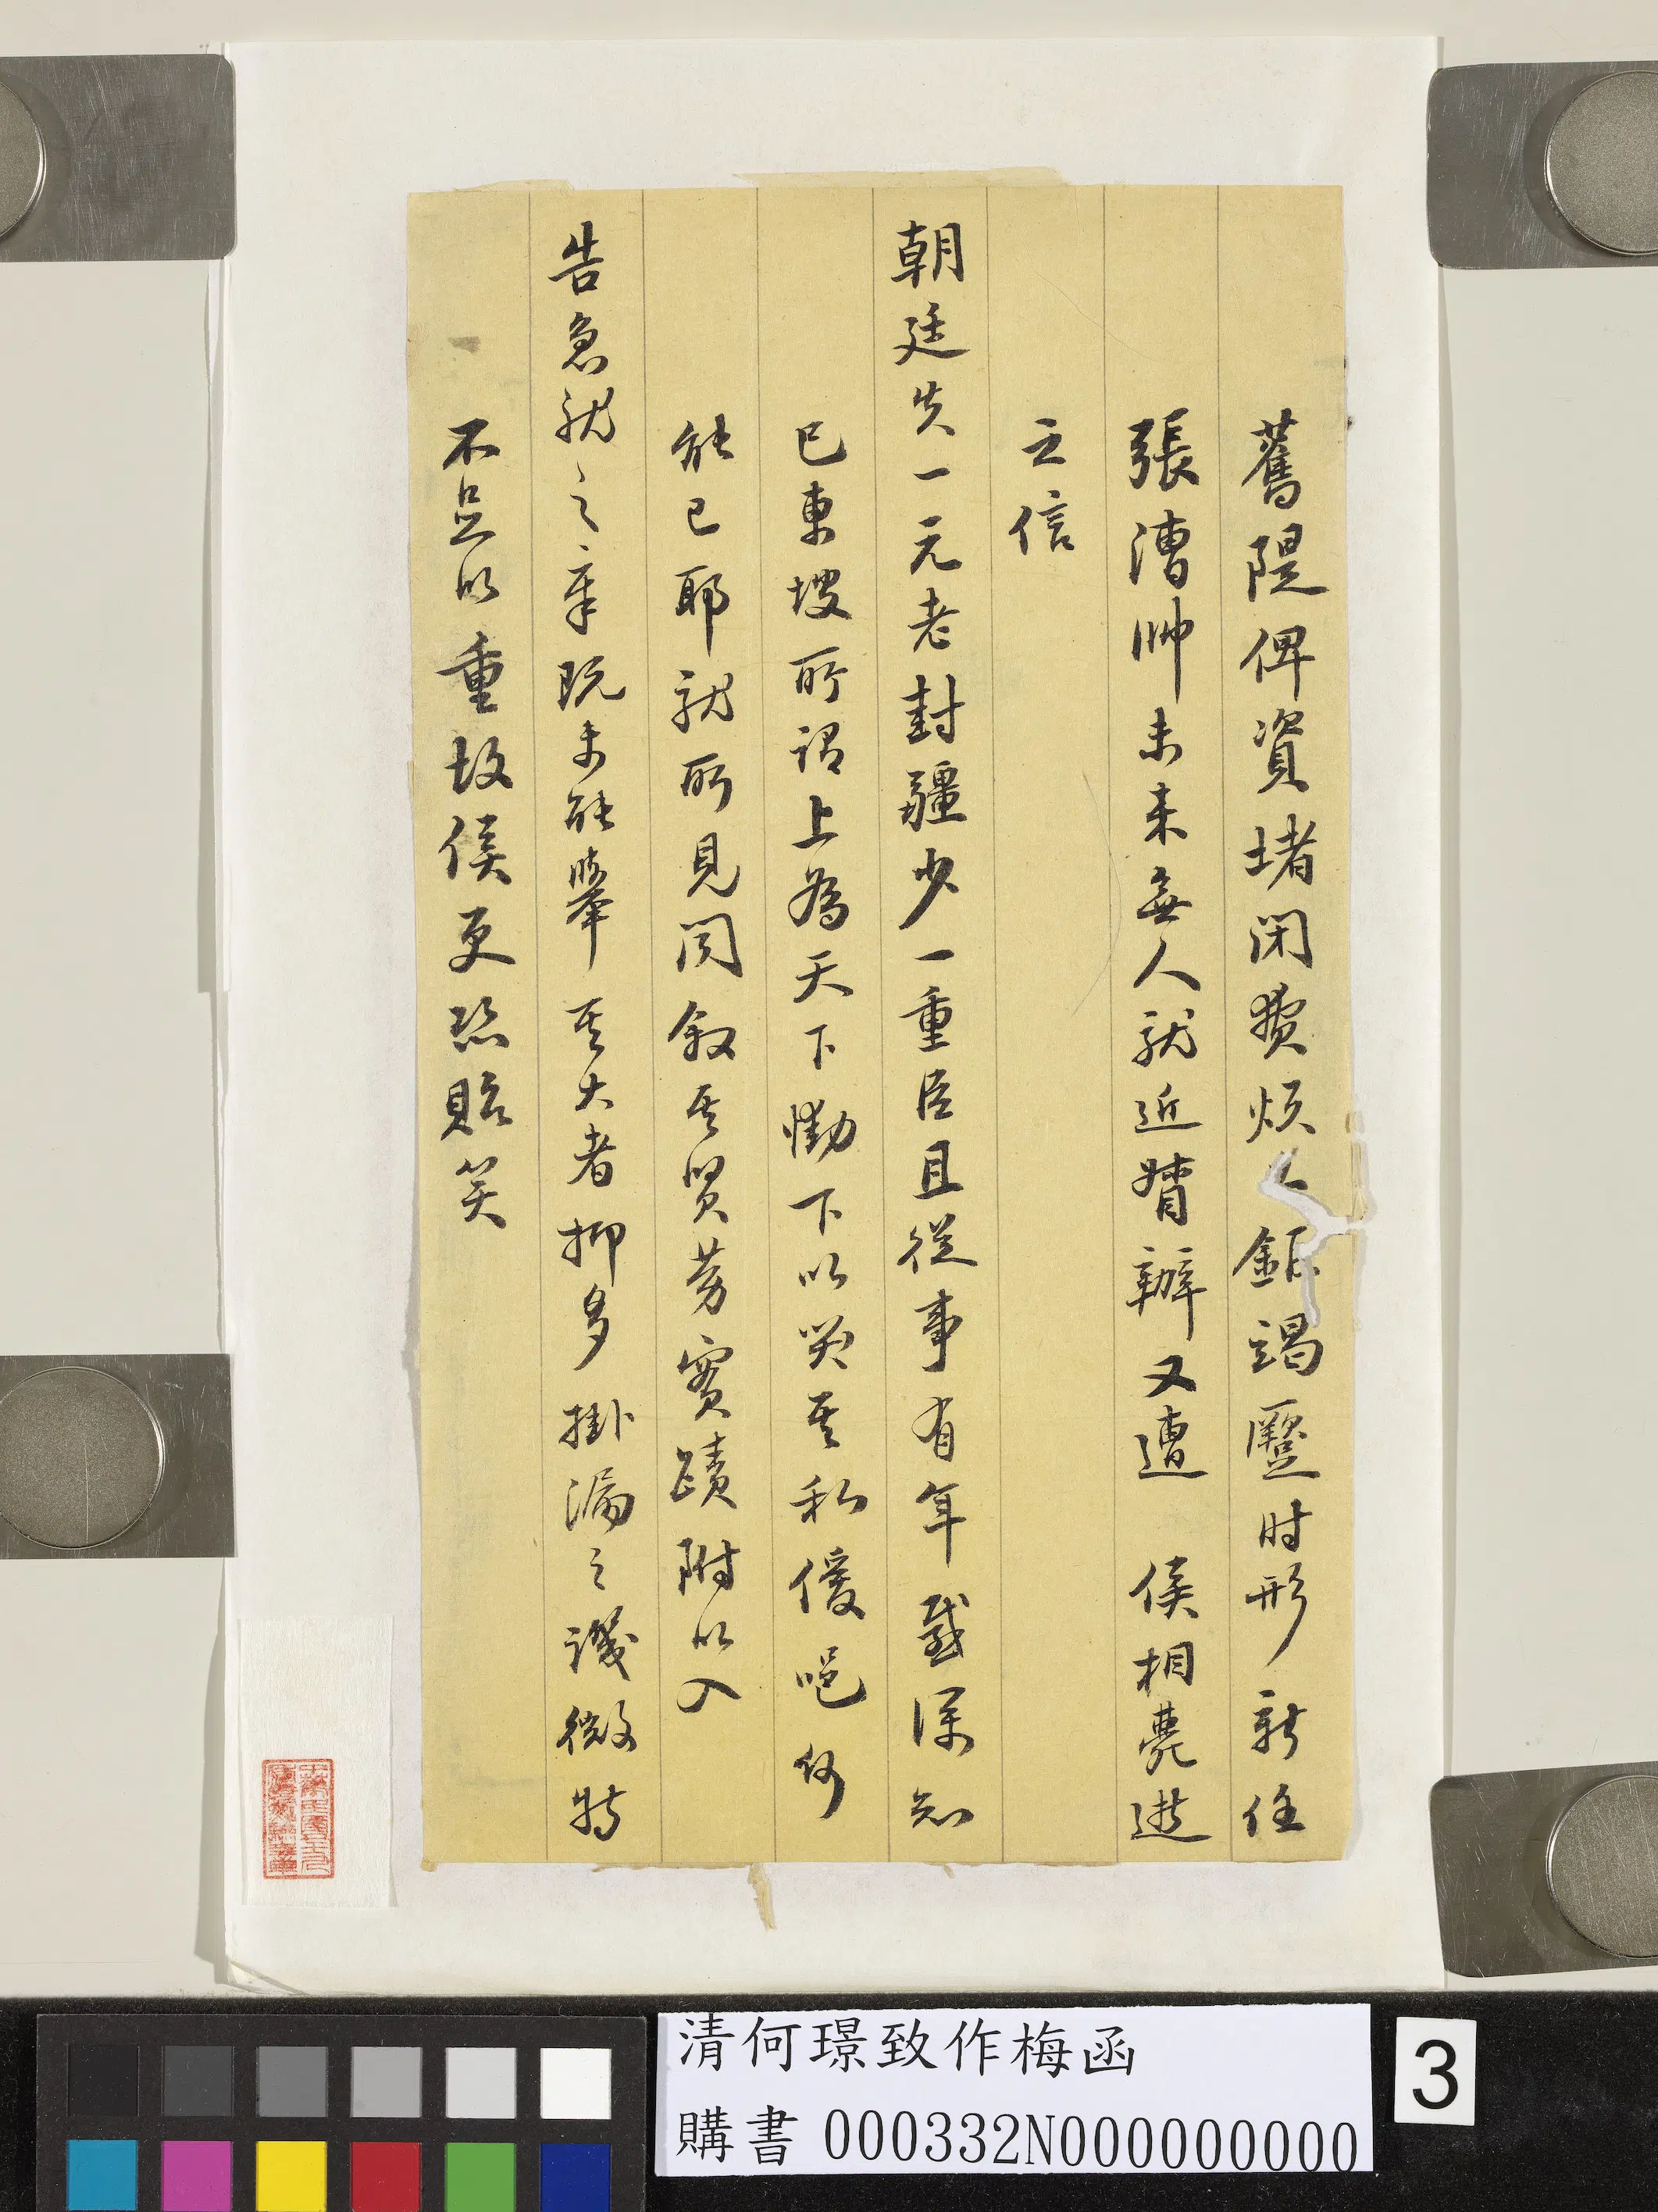 舊隄俾資堵閉費煩 鉅竭蹷时形新任
張漕帥未来無人就近督辦又遭 侯相薨逝
之信
朝廷失一元老封疆少一重臣且從事有年感深知
已東坡所謂上為天下慟下以哭其私僾唈何
能已耶就所見聞叙其賢勞實蹟附以入
告急就之章既未能舉其大者抑多掛漏之譏微特
不足以重故侯更恐貽笑
清何璟致作梅函
購書 000332N000000000
3